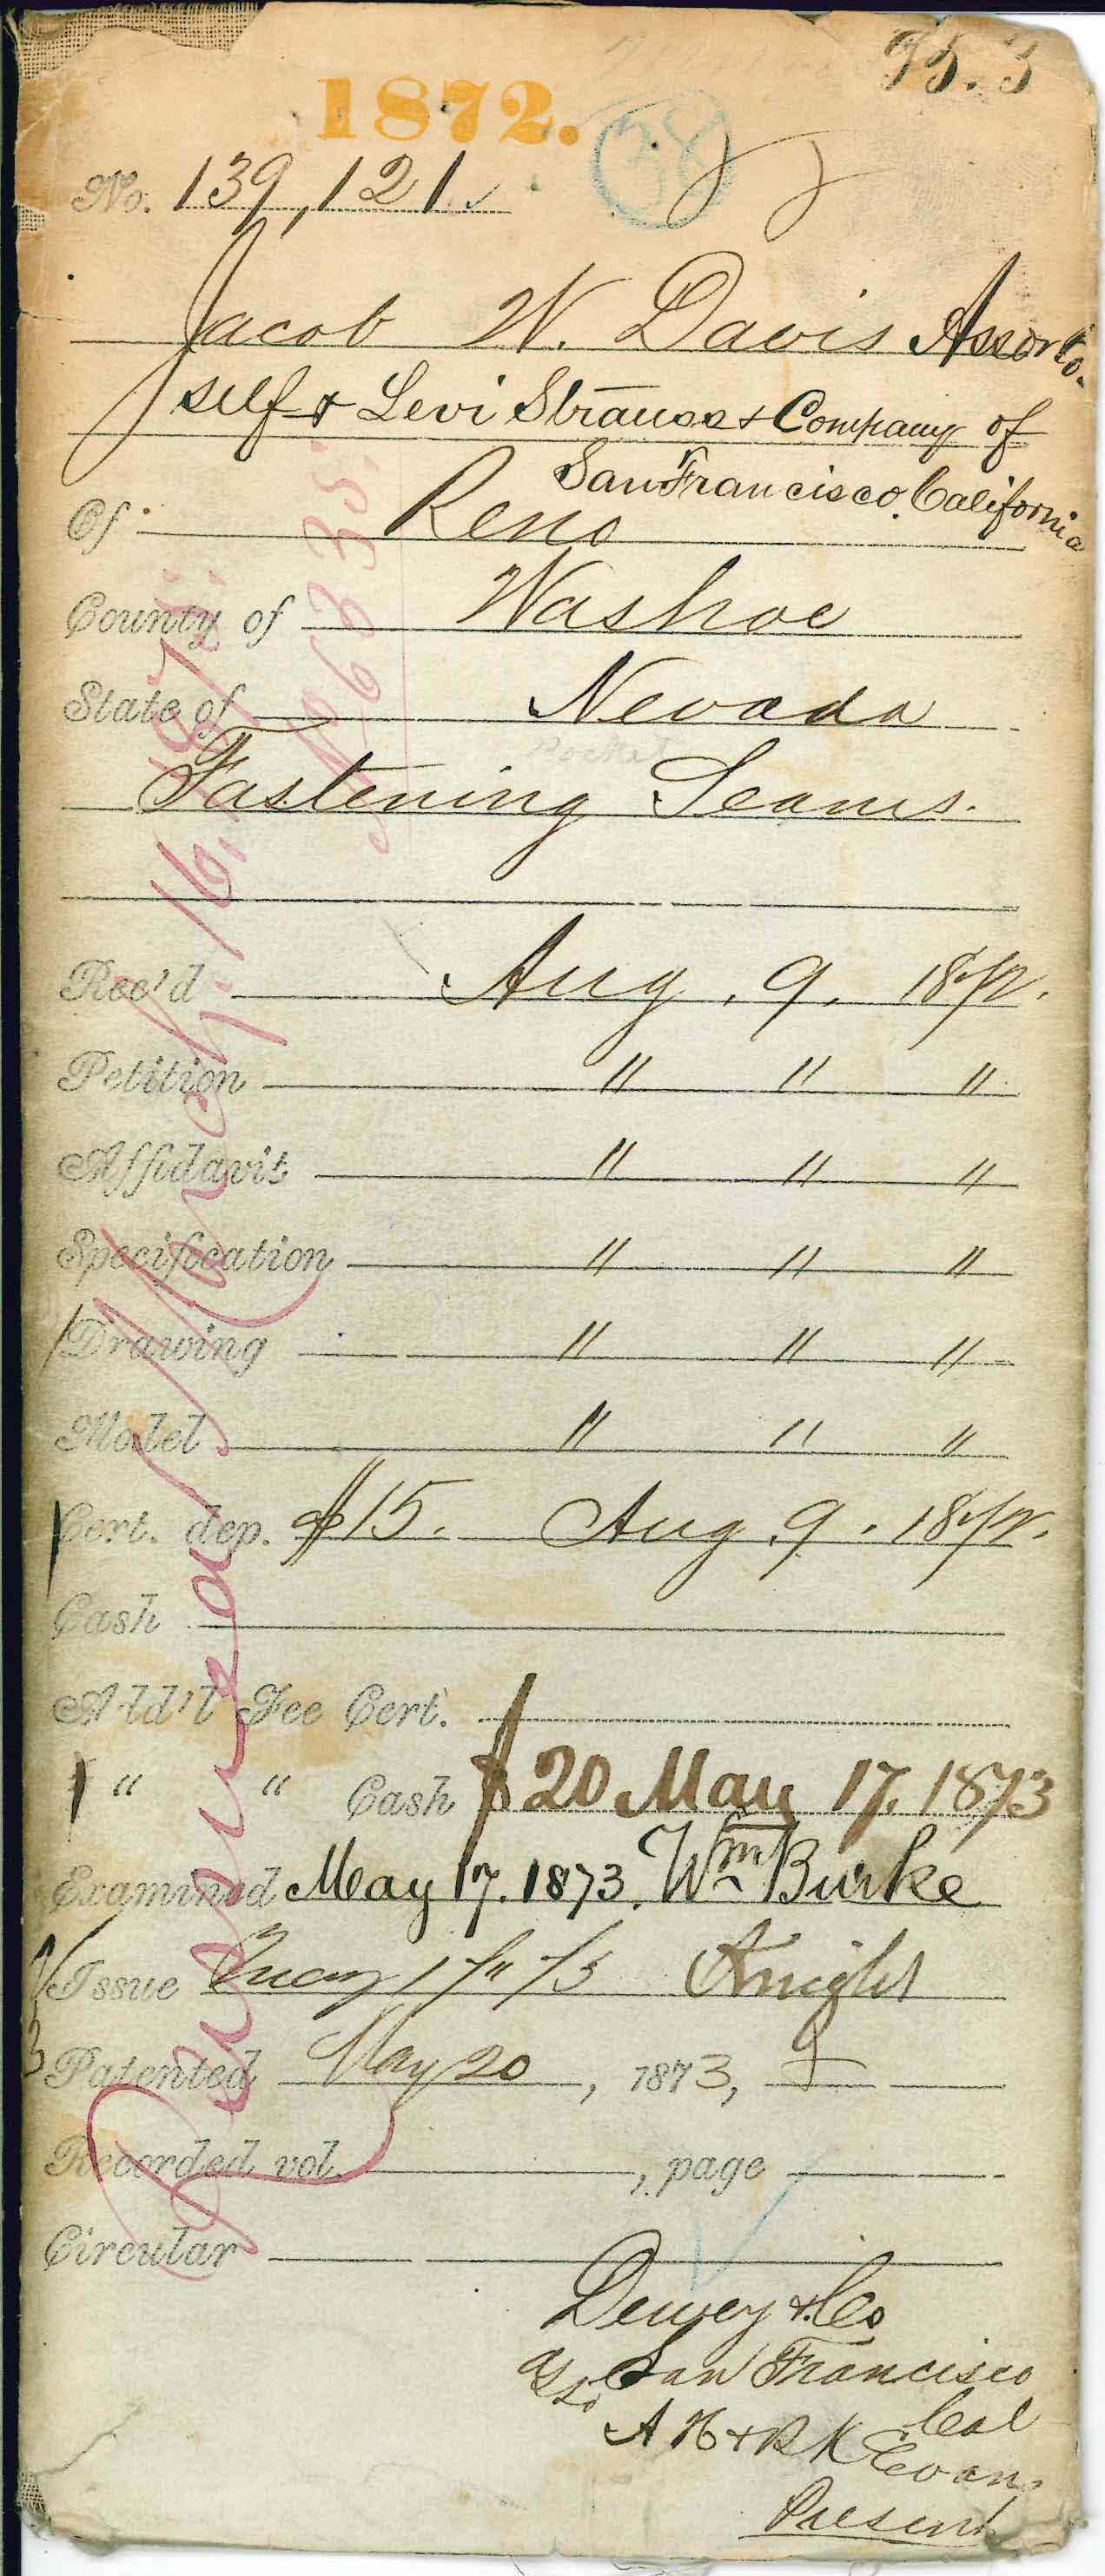 1872.
38
No. 139,121
Jacob W. Davis Assor to.
self & Levi Strauss & Company of
San Francisco, California
Of Reno
County of Washoe
State of Nevada
Pocket
Fastening Seams.
Rec'd Aug. 9. 1872.
Petition " " "
Affidavit " " "
Specification " " "
Drawing " " "
Model " " "
Cert. dep. $15. Aug. 9. 1872.
Cash
Add'l Fee Cert.
" " Cash $20 May 17, 1873
Examined May 17. 1873. Wm Burke
Issue May 17" 73 Knight
Patented May 20, 1873,
Recorded vol. , page
Circular
Dewey & Co
San Francisco
Cal
A H & R K Evans
Present
Renewed March 16, 1875.